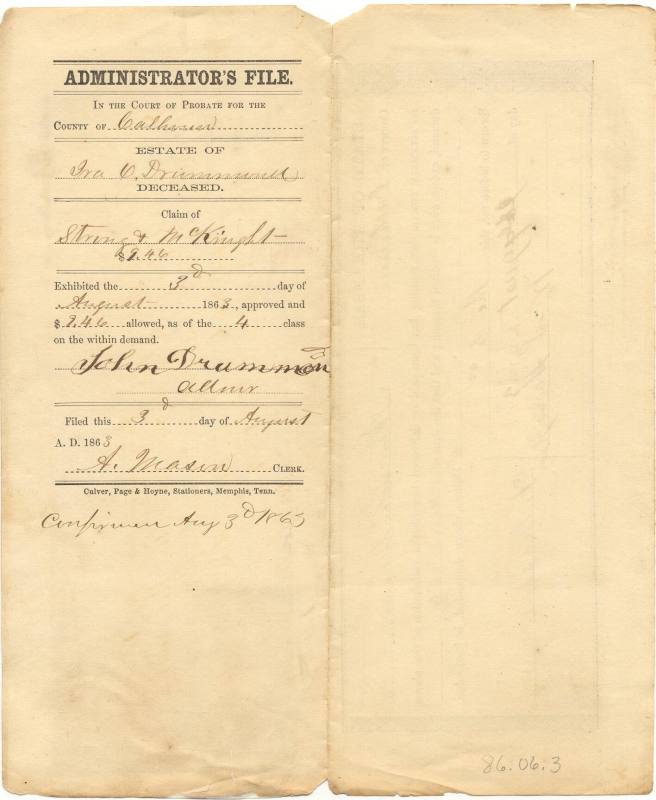 ADMINISTRATOR'S FILE.
IN THE COURT OF PROBATE FOR THE
COUNTY OF Calhoun
ESTATE OF
Ira C. Drummond
DECEASED.
Claim of
Strong & McKnight
$9.46
Exhibited the 3d day of
August 1863, approved and
$ 9.46 allowed, as of the 4 class
on the within demand.
John Drummond
Admr
Filed this 3d day of August
A. D. 1863
A. Mason CLERK.
Culver, Page & Hoyne, Stationers, Memphis, Tenn.
Confirmed Aug 3d 1863
86.06.3